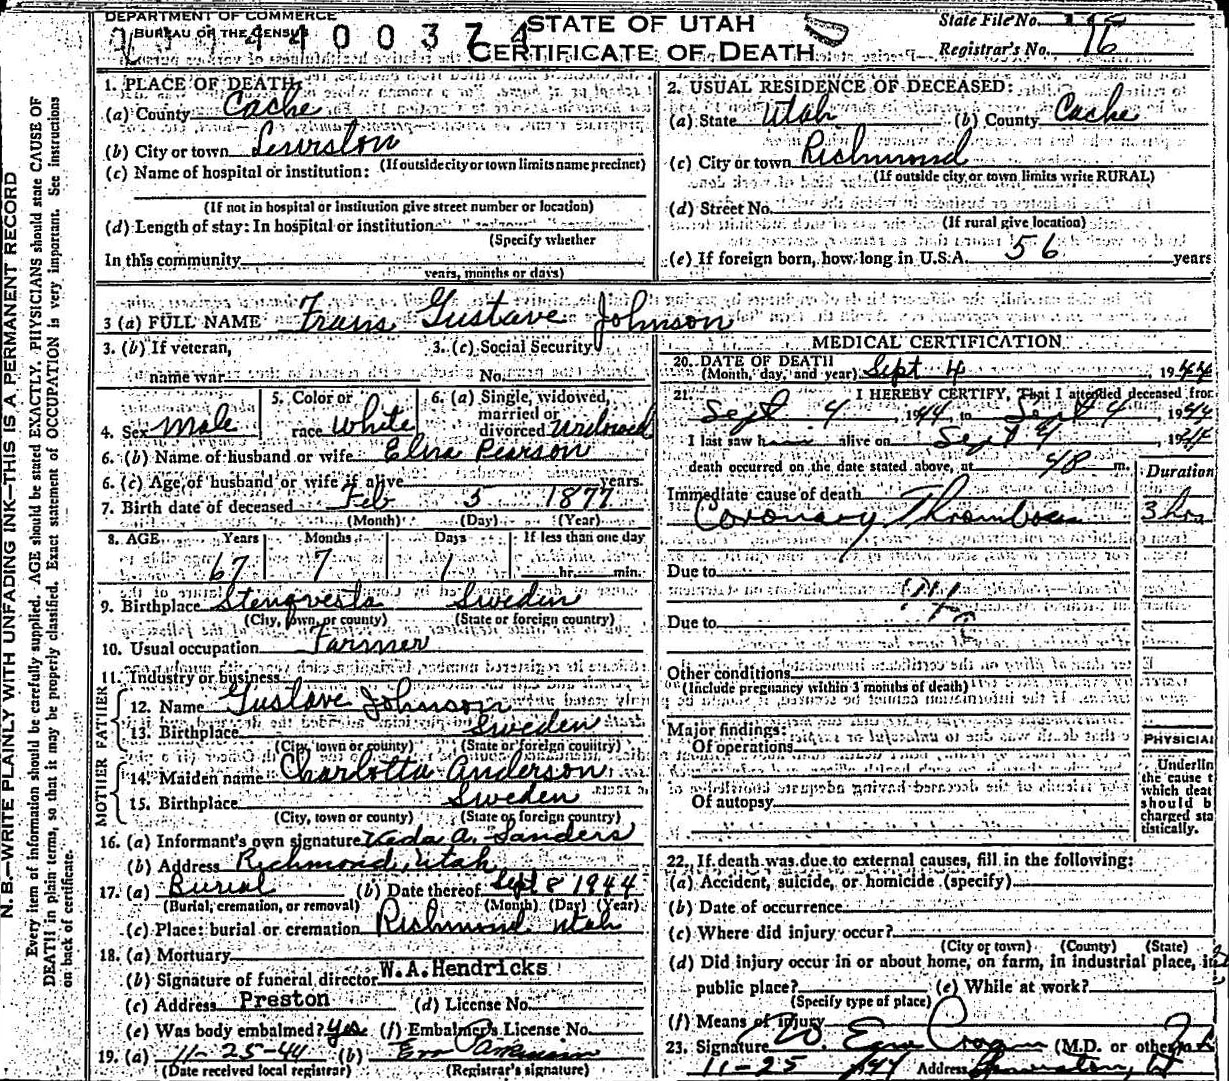 DEPARTMENT OF COMMERCE
BUREAU OF THE CENSUS
4 4 0 0 3 7 4
STATE OF UTAH
CERTIFICATE OF DEATH
State File No.
Registrar's No. 16
N. B.—WRITE PLAINLY WITH UNFADING INK—THIS IS A PERMANENT RECORD
Every item of information should be carefully supplied. AGE should be stated EXACTLY. PHYSICIANS should state CAUSE OF
DEATH in plain terms, so that it may be properly classified. Exact statement of OCCUPATION is very important. See instructions
on back of certificate.
1. PLACE OF DEATH:
(a) County Cache
(b) City or town Lewiston
(If outside city or town limits name precinct)
(c) Name of hospital or institution:
(If not in hospital or institution give street number or location)
(d) Length of stay: In hospital or institution
(Specify whether
In this community
years, months or days)
2. USUAL RESIDENCE OF DECEASED:
(a) State Utah (b) County Cache
(c) City or town Richmond
(If outside city or town limits write RURAL)
(d) Street No.
(If rural give location)
(e) If foreign born, how long in U.S.A. 56 years
3 (a) FULL NAME Frans Gustave Johnson
3. (b) If veteran,
name war
3. (c) Social Security
No.
4. Sex Male
5. Color or
race White
6. (a) Single, widowed,
married or
divorced Widowed
6. (b) Name of husband or wife Elna Pearson
6. (c) Age of husband or wife if alive years
7. Birth date of deceased Feb 3 1877
(Month) (Day) (Year)
8. AGE Years Months Days If less than one day
67 7 1 hr. min.
9. Birthplace Sweden
(City, town, or county) (State or foreign country)
10. Usual occupation Farmer
11. Industry or business
FATHER
12. Name Gustave Johnson
13. Birthplace Sweden
(City, town or county) (State or foreign country)
MOTHER
14. Maiden name Charlotta Anderson
15. Birthplace Sweden
(City, town or county) (State or foreign country)
16. (a) Informant's own signature Veda A. Sanders
(b) Address Richmond, Utah
17. (a) Burial (b) Date thereof Sept 8 1944
(Burial, cremation, or removal) (Month) (Day) (Year)
(c) Place: burial or cremation Richmond Utah
18. (a) Mortuary
(b) Signature of funeral director W.A.Hendricks
(c) Address Preston (d) License No.
(e) Was body embalmed? Yes (f) Embalmer's License No.
19. (a) 11-25-44 (b)
(Date received local registrar) (Registrar's signature)
MEDICAL CERTIFICATION
20. DATE OF DEATH
(Month, day, and year) Sept 4, 1944
21. I HEREBY CERTIFY, That I attended deceased for
Sept 4 1944 to Sept 4 1944
I last saw him alive on Sept 4, 1944
death occurred on the date stated above, at m.
Duration
Immediate cause of death
Coronary Thrombosis 3 hrs
Due to
Due to
Other conditions
(Include pregnancy within 3 months of death)
Major findings:
Of operations
Of autopsy
PHYSICIAN
Underlin
the cause t
which deat
should b
charged sta
tistically.
22. If death was due to external causes, fill in the following:
(a) Accident, suicide, or homicide (specify)
(b) Date of occurrence
(c) Where did injury occur?
(City or town) (County) (State)
(d) Did injury occur in or about home, on farm, in industrial place, in
public place? (e) While at work?
(Specify type of place)
(f) Means of injury
23. Signature (M.D. or other)
11-25 1944 Address Lewiston, Ut